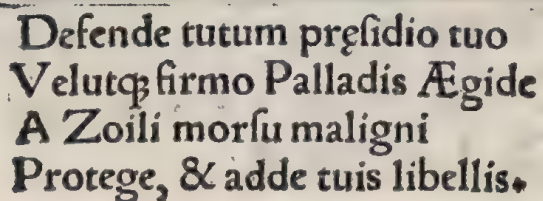 Defende tutum pręſidio tuo
Velutꝙ firmo Palladis Ægide
A Zoili morſu maligni
Protege, & adde tuis libellis.